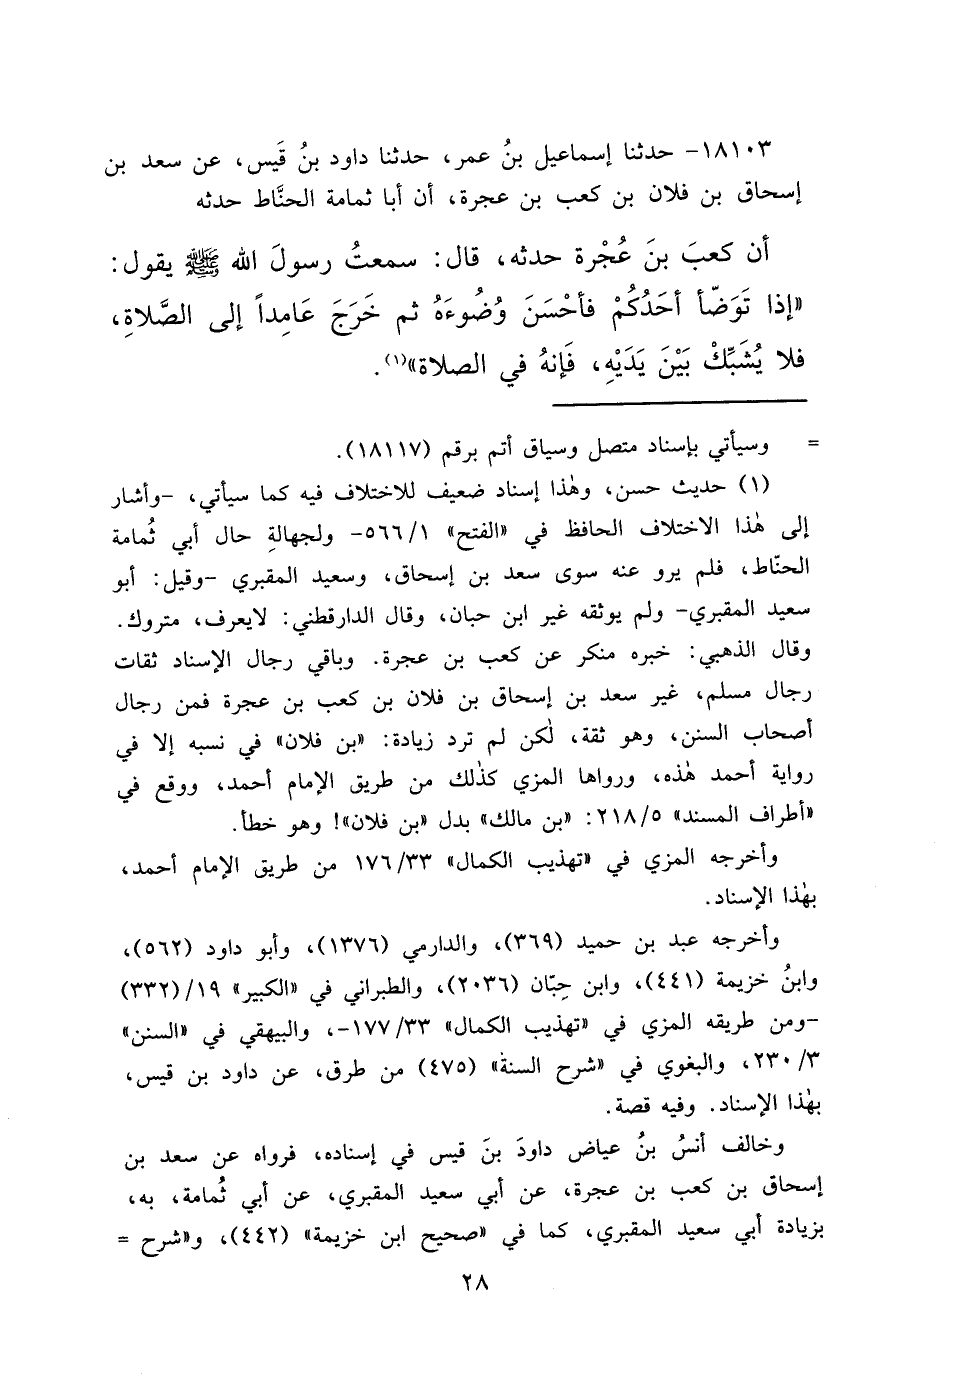 ١٨١٠٣- حدثنا إسماعيل بنُ عمر، حدثنا داود بنُ قَيس، عن سعد بن
إسحاق بن فلان بن كعب بن عجرة، أن أبا ثمامة الحنَّاط حدثه
أن كعبَ بنَ عُجْرة حدثه، قال: سمعتُ رسولَ الله ﷺ يقول:
«إذا تَوَضّأ أحَدُكُمْ فأحْسَنَ وُضُوءَهُ ثم خَرَجَ عَامِداً إلى الصَّلاةِ،
فلا يُشَبِّكْ بَيْنَ يَدَيْهِ، فَإنهُ في الصلاة»(١).
= وسيأتي بإسناد متصل وسياق أتم برقم (١٨١١٧).
(١) حديث حسن، وهٰذا إسناد ضعيف للاختلاف فيه كما سيأتي، -وأشار
إلى هٰذا الاختلاف الحافظ في «الفتح» ٥٦٦/١- ولجهالةِ حال أبي ثُمامة
الحنّاط، فلم يرو عنه سوى سعد بن إسحاق، وسعيد المقبري -وقيل: أبو
سعيد المقبري- ولم يوثقه غير ابن حبان، وقال الدارقطني: لايعرف، متروك.
وقال الذهبي: خبره منكر عن كعب بن عجرة. وباقي رجال الإسناد ثقات
رجال مسلم، غير سعد بن إسحاق بن فلان بن كعب بن عجرة فمن رجال
أصحاب السنن، وهو ثقة، لٰكن لم ترد زيادة: «بن فلان» في نسبه إلا في
رواية أحمد هٰذه، ورواها المزي كذٰلك من طريق الإمام أحمد، ووقع في
«أطراف المسند» ٢١٨/٥: «بن مالك» بدل «بن فلان»! وهو خطأ.
وأخرجه المزي في «تهذيب الكمال» ١٧٦/٣٣ من طريق الإمام أحمد،
بهٰذا الإسناد.
وأخرجه عبد بن حميد (٣٦٩)، والدارمي (١٣٧٦)، وأبو داود (٥٦٢)،
وابنُ خزيمة (٤٤١)، وابن حِبّان (٢٠٣٦)، والطبراني في «الكبير» ١٩/(٣٣٢)
-ومن طريقه المزي في «تهذيب الكمال» ١٧٧/٣٣-، والبيهقي في «السنن»
٢٣٠/٣، والبغوي في «شرح السنة» (٤٧٥) من طرق، عن داود بن قيس،
بهٰذا الإسناد. وفيه قصة.
وخالف أنسُ بنُ عياض داودَ بنَ قيس في إسناده، فرواه عن سعد بن
إسحاق بن كعب بن عجرة، عن أبي سعيد المقبري، عن أبي ثُمامة، به،
بزيادة أبي سعيد المقبري، كما في «صحيح ابن خزيمة» (٤٤٢)، و«شرح =
٢٨